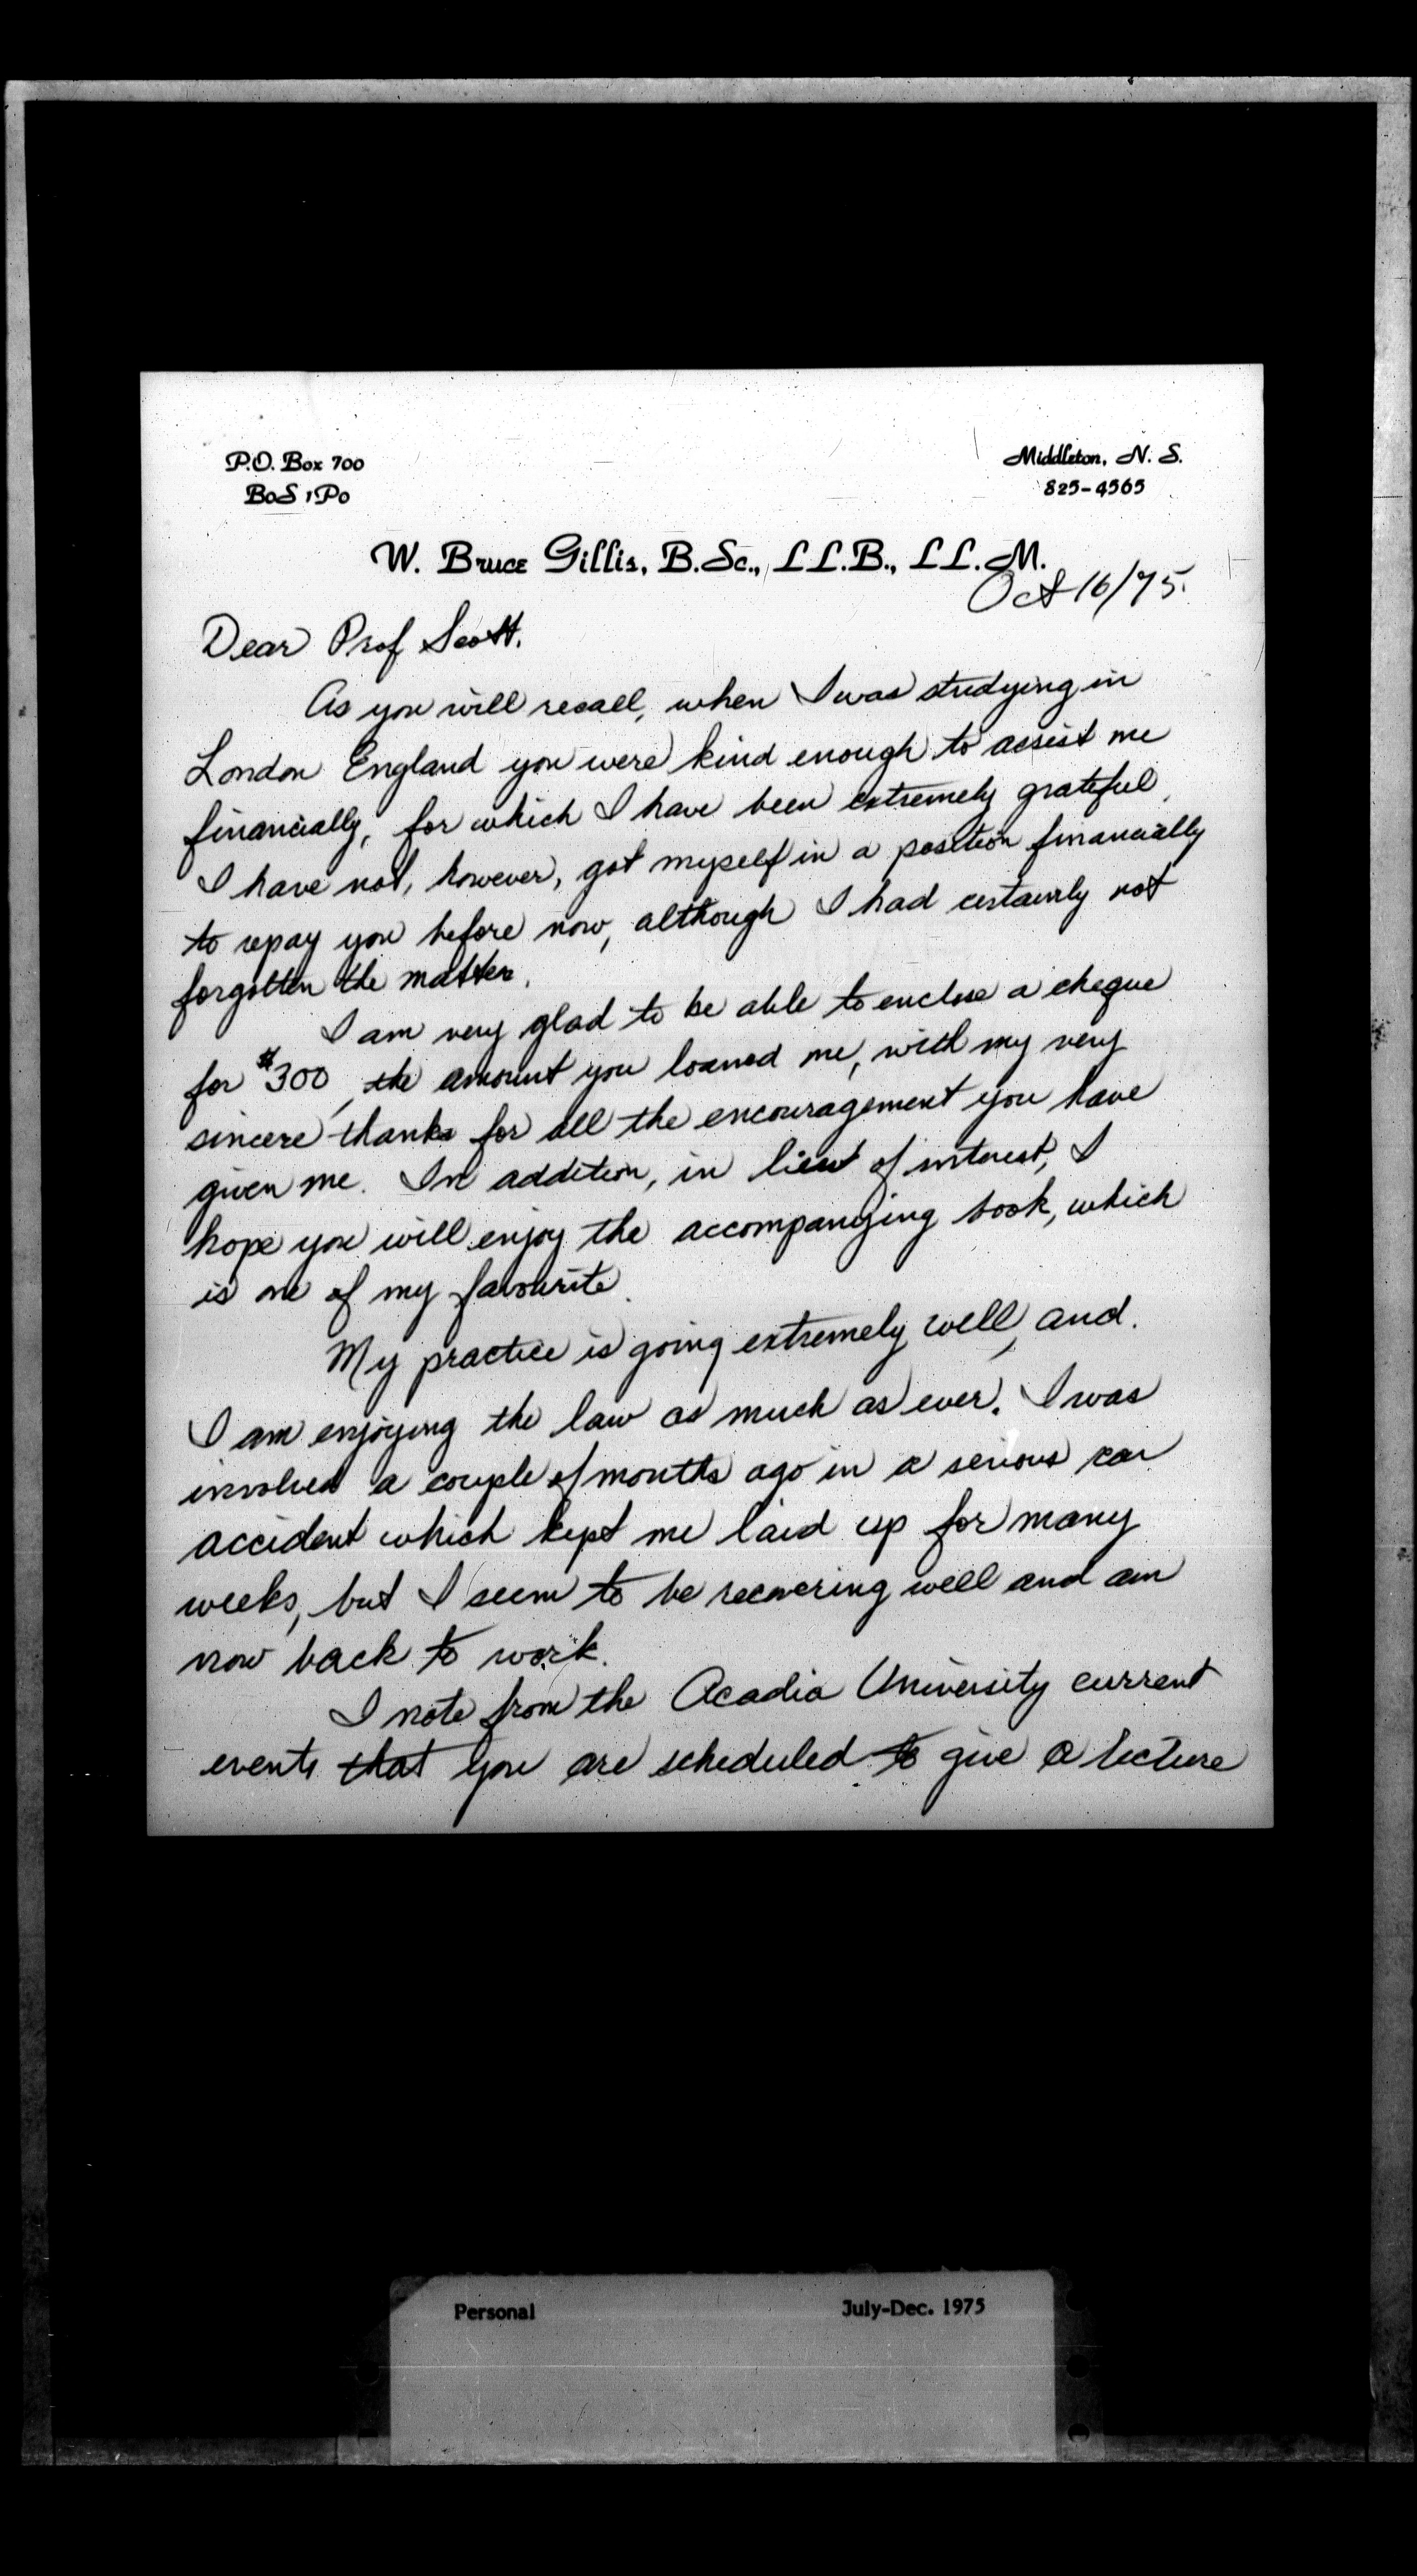 P.O. Box 700
BoS 1Po
Middleton, N. S.
825-4565
W. Bruce Gillis, B.Sc., LL.B., LL.M.
Oct 16/75.
Dear Prof Scott.
As you will recall, when I was studying in
London England you were kind enough to assist me
financially, for which I have been extremely grateful.
I have not, however, got myself in a position financially
to repay you before now, although I had certainly not
forgotten the matter.
I am very glad to be able to enclose a cheque
for $300, the amount you loaned me, with my very
sincere thanks for all the encouragement you have
given me. In addition, in lieu of interest, I
hope you will enjoy the accompanying book, which
is one of my favourite.
My practice is going extremely well, and.
I am enjoying the law as much as ever. I was
involved a couple of months ago in a serious car
accident which kept me laid up for many
weeks, but I seem to be recovering well and am
now back to work.
I note from the Acadia University current
events that you are scheduled to give a lecture
Personal
July-Dec. 1975